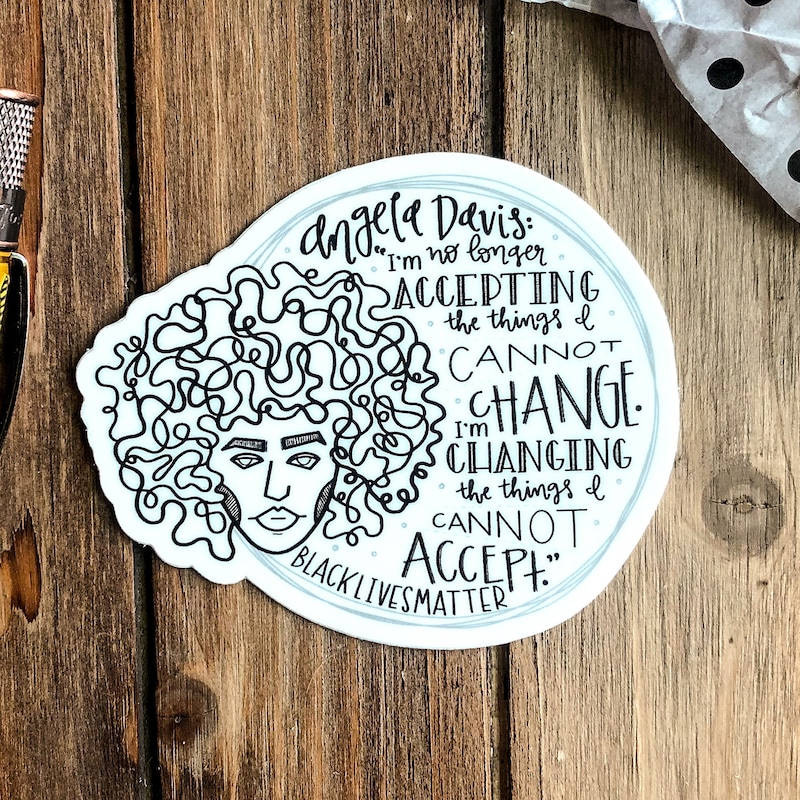 Angela Davis:
"I'm no longer
ACCEPTING
the things I
CANNOT
CHANGE.
I'm
CHANGING
the things I
CANNOT
ACCEPT."
BLACKLIVESMATTER